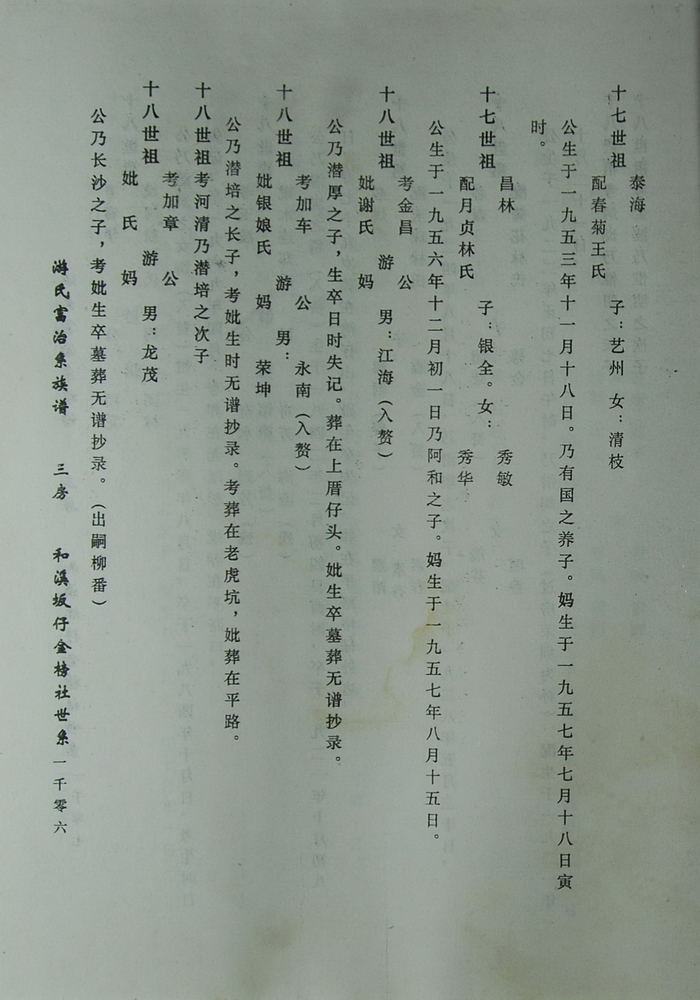 十七世祖
泰海
配春菊王氏
子：艺州 女：清枝
公生于一九五三年十一月十八日。乃有国之养子。妈生于一九五七年七月十八日寅
时。
十七世祖
昌林
配月贞林氏
子：银全。女：
秀敏
秀华
公生于一九五六年十二月初一日乃阿和之子。妈生于一九五七年八月十五日。
十八世祖
考金昌 公
妣谢氏 妈
游
男：江海（入赘）
公乃潜厚之子，生卒日时失记。葬在上厝仔头。妣生卒墓葬无谱抄录。
十八世祖
考加车 公
妣银娘氏 妈
游
男：
永南（入赘）
荣坤
公乃潜培之长子，考妣生时无谱抄录。考葬在老虎坑，妣葬在平路。
十八世祖考河清乃潜培之次子
十八世祖
考加章 公
妣 氏 妈
游
男：龙茂
公乃长沙之子，考妣生卒墓葬无谱抄录。（出嗣柳番）
游氏富治系族谱 三房 和溪坂仔金榜社世系 一千零六